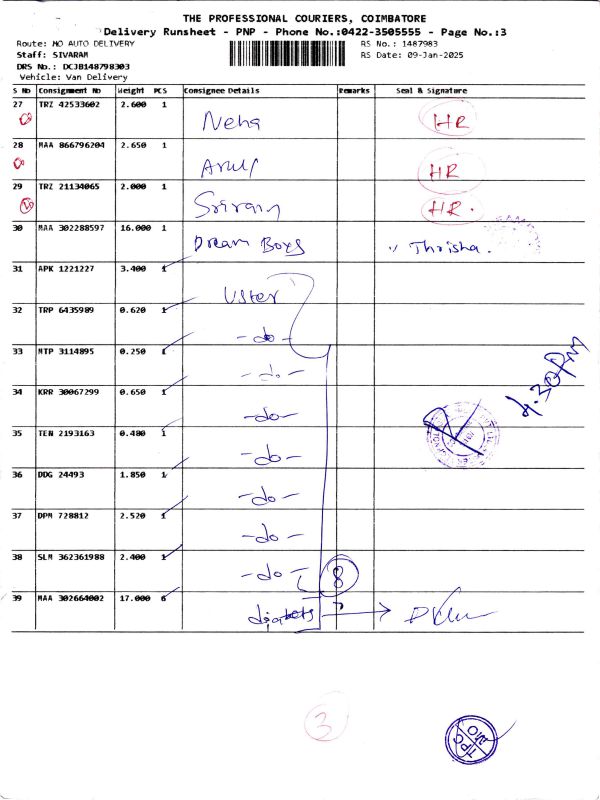 THE PROFESSIONAL COURIERS, COIMBATORE
Delivery Runsheet - PNP - Phone No.:0422-3505555 - Page No.:3
Route: MO AUTO DELIVERY RS No.: 1487983
Staff: SIVARAM RS Date: 09-Jan-2025
DRS No.: DCJB148798303
Vehicle: Van Delivery
S No Consignment No Weight PCS Consignee Details Remarks Seal & Signature
27 TRZ 42533602 2.600 1 Neha HR
28 MAA 866796204 2.650 1 Arul HR
29 TRZ 21134065 2.000 1 Sriram HR.
30 MAA 302288597 16.000 1 Dream Boys Thrisha.
31 APK 1221227 3.400 1
32 TRP 6435989 0.620 1 -do-
33 MTP 3114895 0.250 1 -do-
34 KRR 30067299 0.650 1 -do-
35 TEN 2193163 0.480 1 -do-
4.30pm
36 DDG 24493 1.850 1 -do-
37 DPM 728812 2.520 1 -do-
38 SLM 362361988 2.400 1 -do- 8
39 MAA 302664002 17.000 6
3